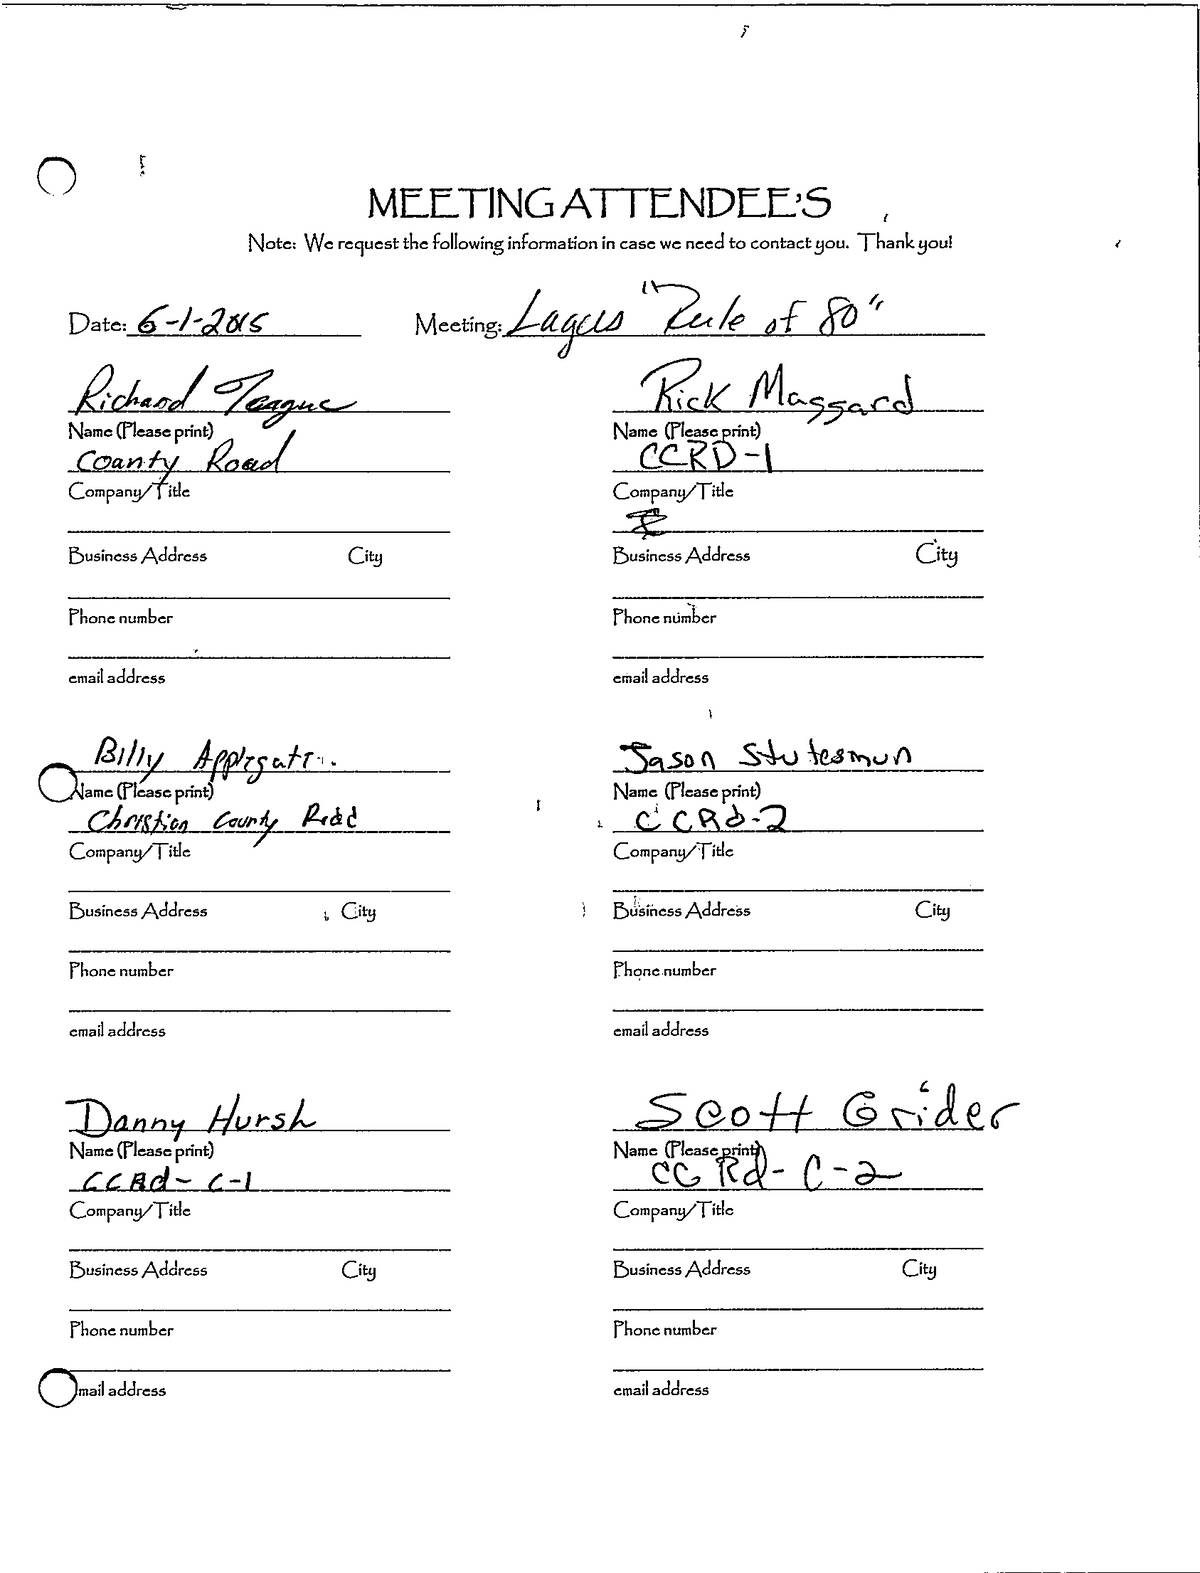 MEETING ATTENDEE'S
Note: We request the following information in case we need to contact you. Thank you!
Date: 6-1-2015 Meeting: Lagers "Rule of 80"
Richard Teague
Name (Please print)
County Road
Company/Title
Business Address City
Phone number
email address
Rick Maggard
Name (Please print)
CCRD-1
Company/Title
Business Address City
Phone number
email address
Billy Applegate
Name (Please print)
Christian County Road
Company/Title
Business Address City
Phone number
email address
Jason Stutesmun
Name (Please print)
CCRd-2
Company/Title
Business Address City
Phone number
email address
Danny Hursh
Name (Please print)
CCRd- C-1
Company/Title
Business Address City
Phone number
email address
Scott Grider
Name (Please print)
CC Rd- C-2
Company/Title
Business Address City
Phone number
email address